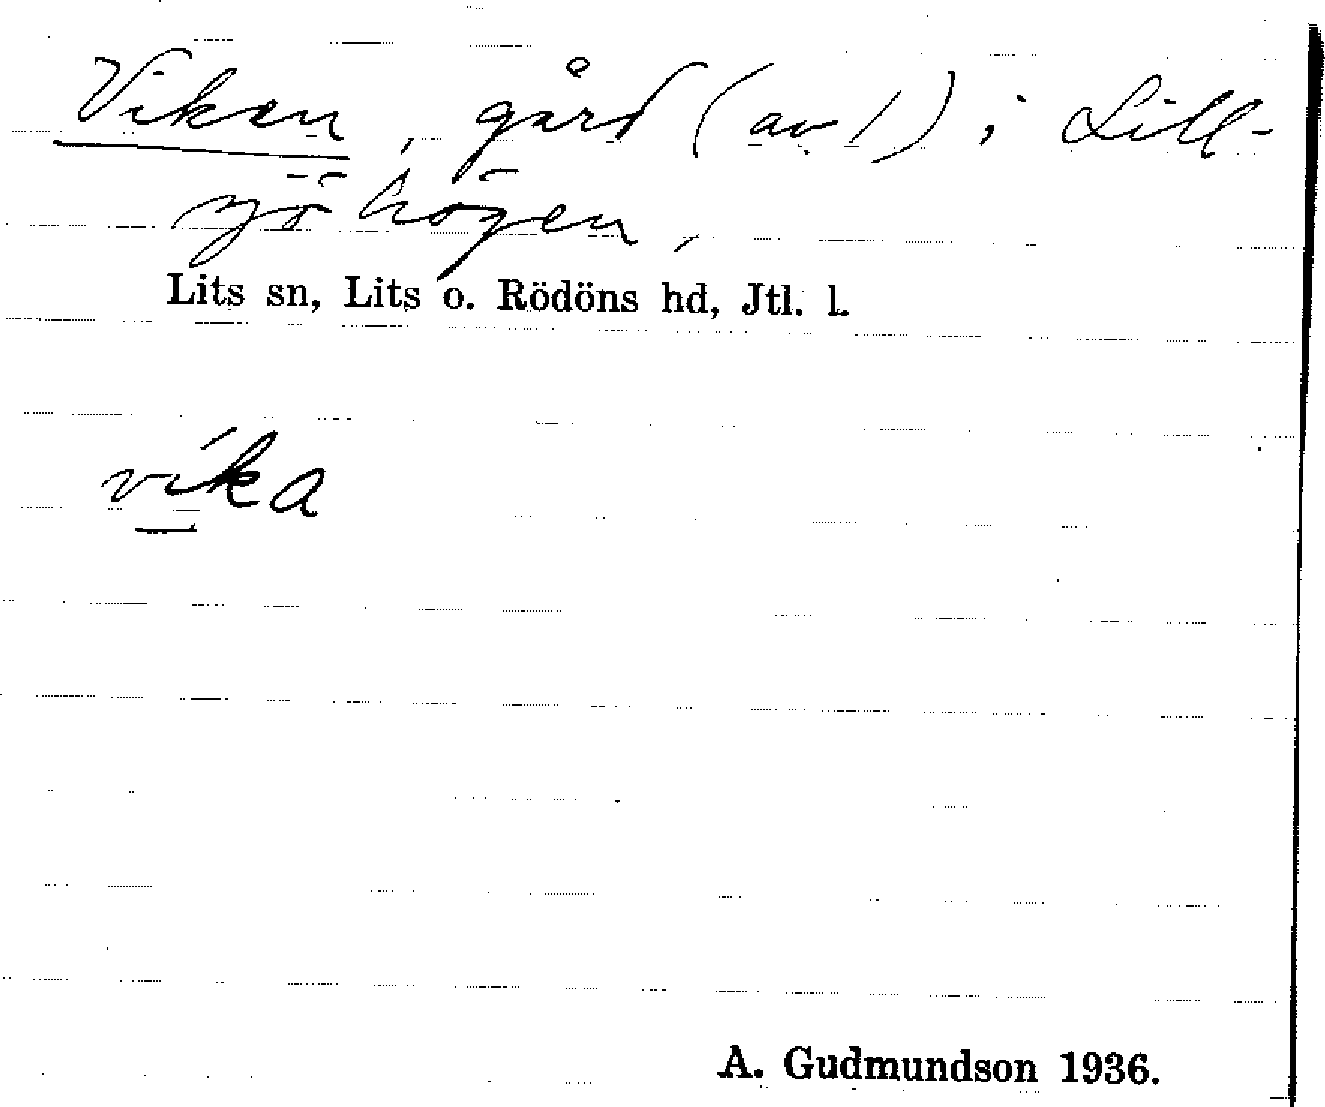 Viken, gård (avl), i Lill-
sjöhögen,
Lits sn, Lits o. Rödöns hd, Jtl. l.
vika
A. Gudmundson 1936.